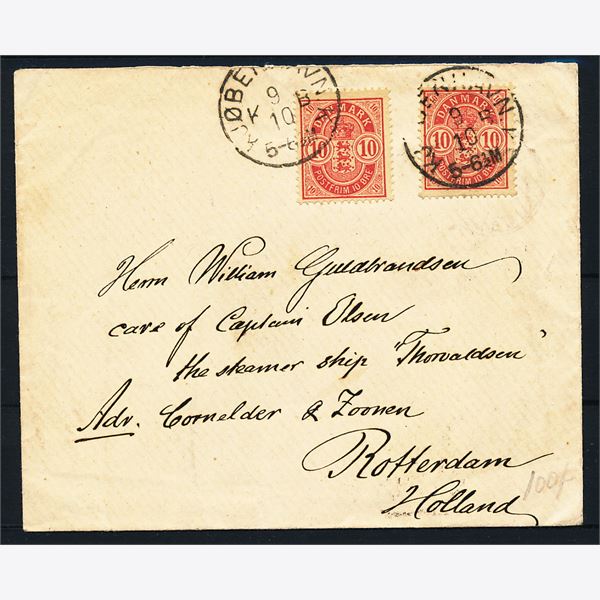 KJØBENHAVN K.
9 B
K 10
5-6½M
DANMARK
10 10
POSTFRIM. 10 ØRE
KJØBENHAVN K.
9 B
10
5-6½M
DANMARK
10 10
POSTFRIM. 10 ØRE
Herrn William Guldbrandsen
care of Captain Olsen
the steamer ship "Thorvaldsen"
Adr. Cornelder & Zoonen
Rotterdam
Holland
100/-